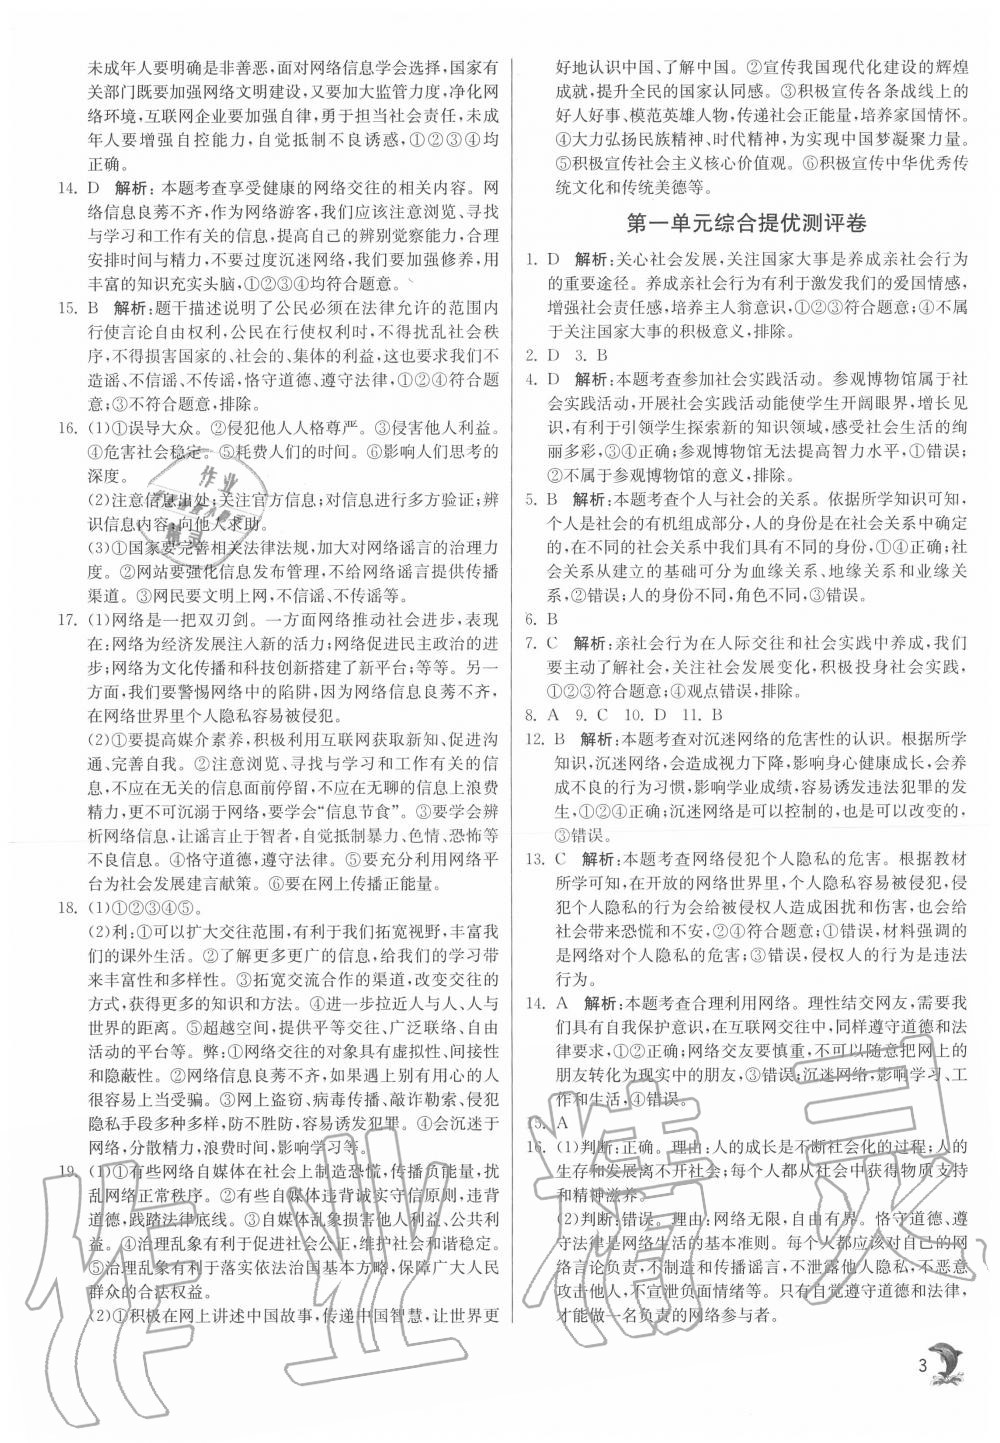 未成年人要明确是非善恶，面对网络信息学会选择，国家有
关部门既要加强网络文明建设，又要加大监管力度，净化网
络环境，互联网企业要加强自律，勇于承担社会责任，未成
年人要增强自控能力，自觉抵制不良诱惑，①②③④均
正确。
14. D 解析：本题考查享受健康的网络交往的相关内容。网
络信息良莠不齐，作为网络游客，我们应该注意浏览、寻找
与学习和工作有关的信息，提高自己的辨别觉察能力，合理
安排时间与精力，不要过度沉迷网络，我们要加强修养，用
丰富的知识充实头脑，①②③④均符合题意。
15. B 解析：题干描述说明了公民必须在法律允许的范围内
行使言论自由权利，公民在行使权利时，不得扰乱社会秩
序，不得损害国家的、社会的、集体的利益，这要求我们不
造谣、不信谣、不传谣，恪守道德、遵守法律，①②④符合题
意；③不符合题意，排除。
16. (1)①误导大众。②侵犯他人人格尊严。③侵害他人利益。
④危害社会稳定。⑤耗费人们的时间。⑥影响人们思考的
深度。
(2)注意信息出处；关注官方信息；对信息进行多方验证；辨
识信息内容；向他人求助。
(3)①国家要完善相关法律法规，加大对网络谣言的治理力
度。②网站要强化信息发布管理，不给网络谣言提供传播
渠道。③网民要文明上网，不信谣、不传谣等。
17. (1)网络是一把双刃剑。一方面网络推动社会进步，表现
在：网络为经济发展注入新的活力；网络促进民主政治的进
步；网络为文化传播和科技创新搭建了新平台；等等。另一
方面，我们要警惕网络中的陷阱，因为网络信息良莠不齐，
在网络世界里个人隐私容易被侵犯。
(2)①要提高媒介素养，积极利用互联网获取新知、促进沟
通、完善自我。②注意浏览、寻找与学习和工作有关的信
息，不应在无关的信息面前停留，不应在无聊的信息上浪费
精力，更不可沉溺于网络，要学会“信息节食”。③要学会辨
析网络信息，让谣言止于智者，自觉抵制暴力、色情、恐怖等
不良信息。④恪守道德，遵守法律。⑤要充分利用网络平
台为社会发展建言献策。⑥要在网上传播正能量。
18. (1)①②③④⑤。
(2)利：①可以扩大交往范围，有利于我们拓宽视野，丰富我
们的课外生活。②了解更多更广的信息，给我们的学习带
来高效性和多样性。③拓宽交流合作的渠道，改变交往的
方式，获得更多的知识和方法。④进一步拉近人与人、人与
世界的距离。⑤超越空间，提供平等交往、广泛联络、自由
活动的平台等。弊：①网络交往的对象具有虚拟性、间接性
和隐蔽性。②网络信息良莠不齐，如果遇上别有用心的人
很容易上当受骗。③网上盗窃、病毒传播、敲诈勒索、侵犯
隐私手段多种多样，防不胜防，容易诱发犯罪。④会沉迷于
网络，分散精力，浪费时间，影响学习等。
19. (1)①有些网络自媒体在社会上制造恐慌，传播负能量，扰
乱网络正常秩序。②有些自媒体违背诚实守信原则，违背
道德，践踏法律底线。③自媒体乱象损害他人利益、公共利
益。④治理乱象有利于促进社会公正，维护社会和谐稳定。
⑤治理乱象有利于落实依法治国基本方略，保障广大人民
群众的合法权益。
(2)①积极在网上讲述中国故事，传递中国智慧，让世界更
好地认识中国、了解中国。②宣传我国现代化建设的辉煌
成就，提升全民的国家认同感。③积极宣传各条战线上的
好人好事、模范英雄人物，传递社会正能量，培养家国情怀。
④大力弘扬民族精神、时代精神，为实现中国梦凝聚力量。
⑤积极宣传社会主义核心价值观。⑥积极宣传中华优秀传
统文化和传统美德等。
第一单元综合提优测评卷
1. D 解析：关心社会发展，关注国家大事是养成亲社会行为
的重要途径。养成亲社会行为有利于激发我们的爱国情感，
增强社会责任感，培养主人翁意识，①②③符合题意；④不属
于关注国家大事的积极意义，排除。
2. D 3. B
4. D 解析：本题考查参加社会实践活动。参观博物馆属于社
会实践活动，参加社会实践活动能使学生开阔眼界，增长见
识，有利于引领学生探索新的知识领域，感受社会生活的绚
丽多彩，③④正确；参观博物馆无法提高智力水平，①错误；
②不属于参观博物馆的积极意义，错误。
5. B 解析：本题考查个人与社会的关系。依据所学知识可知，
个人是社会的有机组成部分，人的身份是在社会关系中确定
的，在不同的社会关系中我们具有不同的身份，①④正确；社会
关系从建立的基础可分为血缘关系、地缘关系和业缘关
系，②错误；人的身份不同，角色不同，③错误。
6. B
7. C 解析：亲社会行为在人际交往和社会实践中养成，我们
要主动了解社会，关注社会发展变化，积极投身社会实践，
①②③符合题意；④观点错误，排除。
8. A 9. C 10. D 11. B
12. B 解析：本题考查对沉迷网络的危害性的认识。根据所学
知识，沉迷网络，会造成视力下降，影响身心健康成长，会养
成不良的行为习惯，影响学业成绩，容易诱发违法犯罪的发
生，①②④正确；沉迷网络是可以控制的，也是可以改变的，
③错误。
13. C 解析：本题考查网络侵犯个人隐私的危害。根据教材
所学可知，在开放的网络世界里，个人隐私容易被侵犯，侵
犯个人隐私的行为会给被侵权人造成困扰和伤害，也会给
社会带来恐慌和不安，②④符合题意；①错误，材料强调的
是网络对个人隐私的危害；③错误，侵权人的行为是违法
行为。
14. A 解析：本题考查合理利用网络。理性结交网友，需要我
们具有自我保护意识，在互联网交往中，同样遵守道德和法
律要求，①②正确；网络交友要慎重，不可以随意把网上的
朋友转化为现实中的朋友，③错误；沉迷网络，影响学习、工
作和生活，④错误。
15. A
16. (1)判断：正确。理由：人的成长是不断社会化的过程；人的
生存和发展离不开社会，每个人都从社会中获得物质支持
和精神滋养。
(2)判断：错误。理由：网络无限，自由有界。恪守道德、遵
守法律是网络生活的基本准则。每个人都应该对自己的网
络言论负责，不制造和传播谣言，不泄露他人隐私，不恶意
攻击他人，不宣泄负面情绪等。只有自觉遵守道德和法律，
才能做一名负责的网络参与者。
3
作业精灵